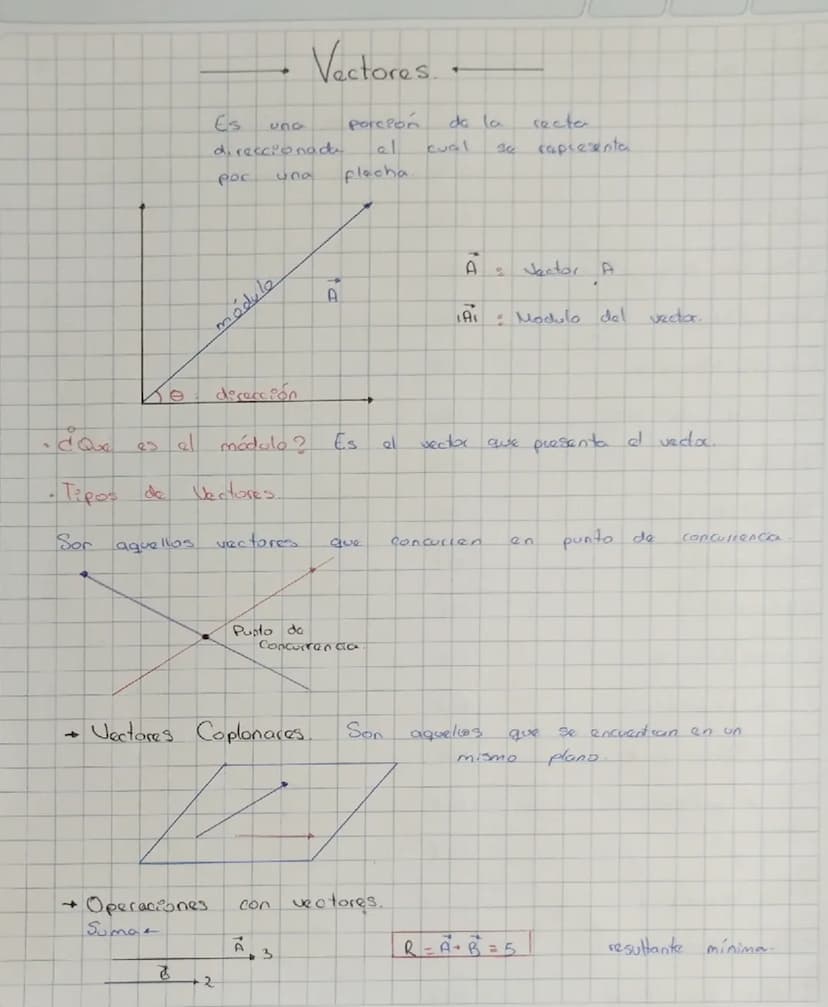 Vectores.
Es una porción de la recta
direccionada el cual se representa
por una flecha
módulo
A⃗
A⃗ = Vector A
|A⃗| : Modulo del vector.
θ : dirección
· ¿Que es el módulo? Es el vector que presenta el vector.
· Tipos de Vectores.
Son aquellos vectores que concurren en punto de concurrencia
Punto de
Concurrencia
→ Vectores Coplonares. Son aquellos que se encuentran en un
mismo plano.
→ Operaciones con vectores.
Suma
A⃗ 3
R = A⃗ + B⃗ = 5
resultante mínima
B⃗ 2